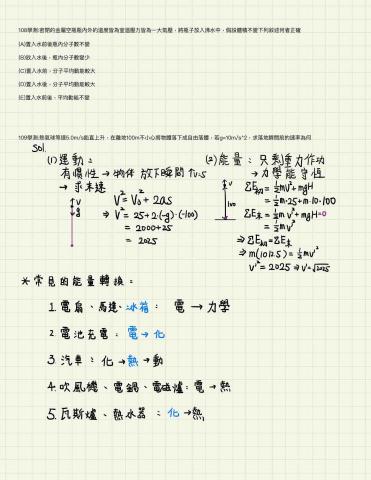 108學測:密閉的金屬空瓶瓶內外的溫度皆為室溫壓力皆為一大氣壓,將瓶子放入沸水中,假設體積不變下列敘述何者正確
(A)置入水前後瓶內分子數不變
(B)放入水後,瓶內分子數變少
(C)置入水前,分子平均動能較大
(D)置入水後,分子平均動能較大
(E)置入水前後,平均動能不變
109學測:熱氣球等速5.0m/s鉛直上升,在離地100m不小心將物體落下成自由落體,若g=10m/s^2,求落地瞬間前的速率為何
Sol.
(1)運動:
有慣性→物体 放下瞬間有v5
→求末速
↑v
↓g
V²=V₀²+2as
⇒V²=25+2·(-g)·(-100)
=2000+25
=2025
(2)能量:只剩重力作功
→力學能守恆
↑v
100
ΣE初=½mv²+mgH
=½m·25+m·10·100
ΣE末=½mv'²+mgH=0
=½mv'²
⇒ΣE初=ΣE末
⇒m(1012.5)=½mv'²
v'²=2025⇒v'=√2025
*常見的能量轉換:
1.電扇、馬達、冰箱:電→力學
2.電池充電:電→化
3.汽車:化→熱→動
4.吹風機、電鍋、電磁爐:電→熱
5.瓦斯爐、熱水器:化→熱